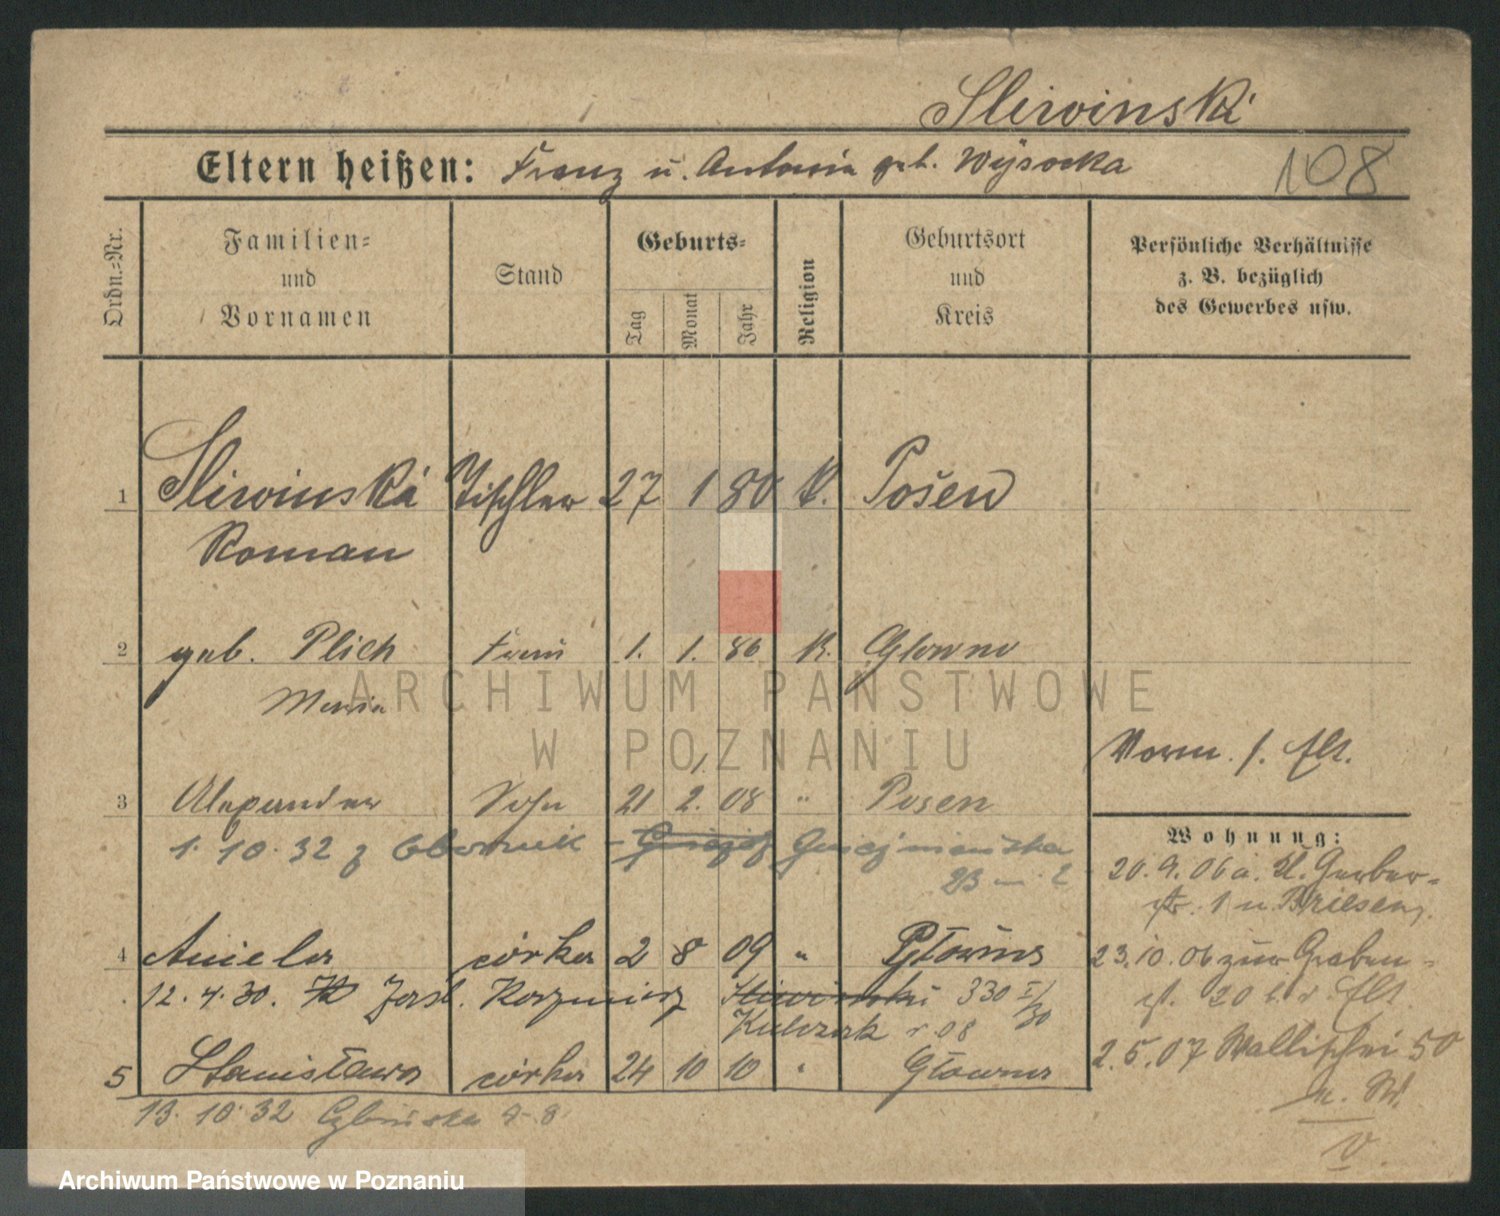 Sliwinski
Eltern heißen: Franz u. Antonia geb. Wysocka
108
Ordn.=Nr.
Familien=
und
Vornamen
Stand
Geburts=
Tag
Monat
Jahr
Religion
Geburtsort
und
Kreis
Persönliche Verhältnisse
z. B. bezüglich
des Gewerbes usw.
1 Sliwinski Tischler 27 1 80 K. Posen
Roman
2 geb. Plich Frau 1. 1. 86 K. Glowno
Maria
ARCHIWUM PAŃSTWOWE
W POZNANIU
Vorm. s. Elt.
1.
3 Alexander Sohn 21 2. 08 " Posen
1. 10. 32 z Obornik -
23 m. 2
Wohnung:
20. 9. 06 a. Kl. Gerber=
str. 1 u Briesen,
4 Aniela córka 2 8 09 " Główno
23. 10. 06 zur Graben=
st. 20 b. r. Elt.
12. 4. 30. Kazmierz Sliwinski 330 I/30
Kulczak r. 08
2. 5. 07 Wallischei 50
5 Stanisława córka 24 10 10 " Główno
13. 10. 32
v
Archiwum Państwowe w Poznaniu